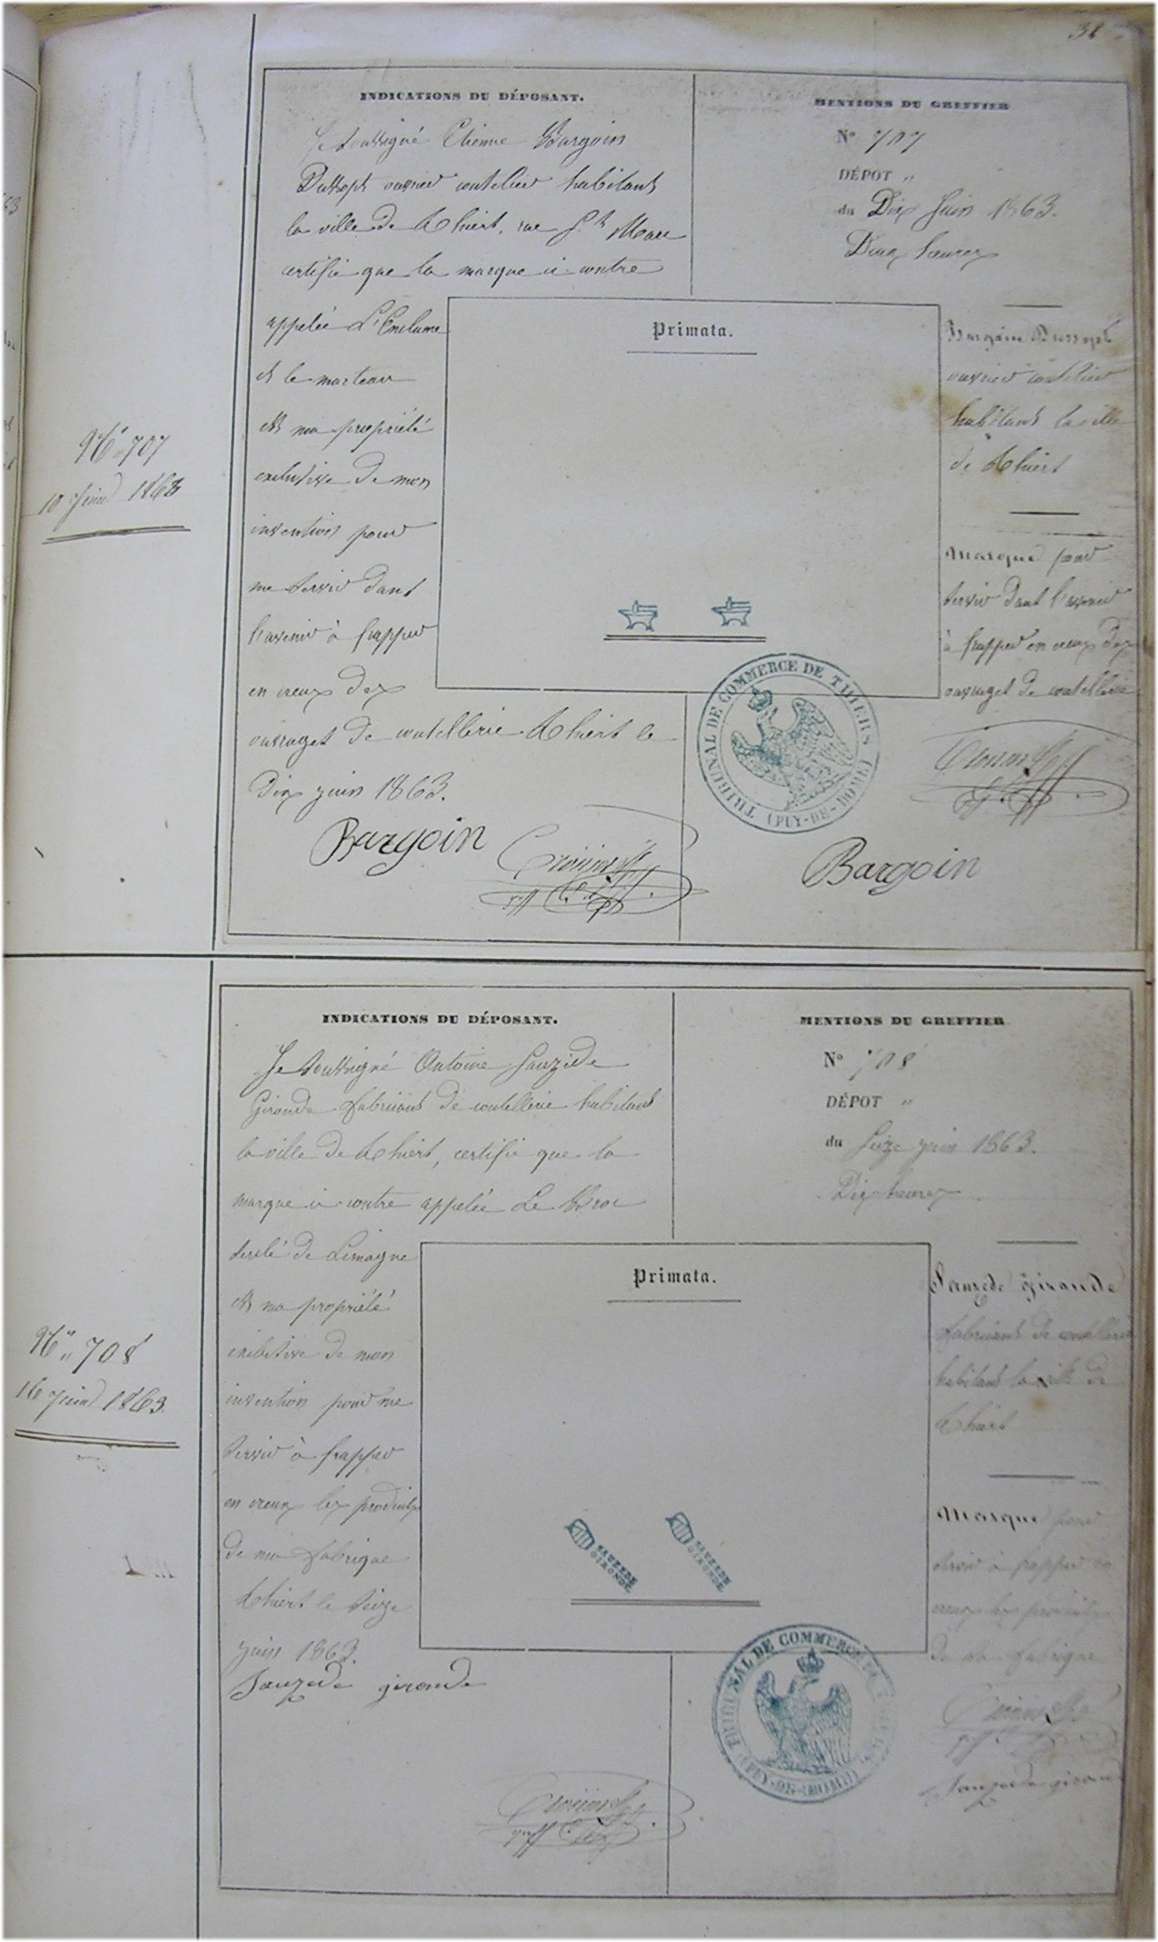 38
Nº 707
10 Juin 1863
INDICATIONS DU DÉPOSANT.
Je soussigné Etienne Bargoin
Dussopt ouvrier coutelier habitant
la ville de Thiers, rue St Marc
certifie que la marque ci contre
appelée L'Enclume
et le marteau
est ma propriété
exclusive de mon
invention pour
me servir dans
l'avenir à frapper
en creux des
ouvrages de coutellerie Thiers le
Dix juin 1863.
Bargoin
MENTIONS DU GREFFIER
Nº 707
DÉPOT "
du Dix Juin 1863.
Deux heures
Primata.
Bargoin Dussopt
ouvrier coutelier
habitant la ville
de Thiers
Marque pour
servir dans l'avenir
à frapper en creux des
ouvrages de coutellerie
TRIBUNAL DE COMMERCE DE THIERS
(PUY-DE-DOME)
Bargoin
Nº 708
16 Juin 1863.
INDICATIONS DU DÉPOSANT.
Je soussigné Antoine Sauzede
Gironde fabricant de coutellerie habitant
la ville de Thiers, certifie que la
marque ci contre appelée Le Broc
de Limagne
est ma propriété
de mon
invention pour me
servir à frapper
en creux les produits
de ma fabrique
Thiers le seize
juin 1863.
Sauzede gironde
MENTIONS DU GREFFIER
Nº 708
DÉPOT "
du Seize juin 1863.
Dix heures
Primata.
SAUZEDE
GIRONDE
SAUZEDE
GIRONDE
Sauzede Gironde
fabricant de coutellerie
habitant la ville de
Thiers
Marque pour
servir à frapper en
creux les produits
de sa fabrique
TRIBUNAL DE COMMERCE DE THIERS
(PUY-DE-DOME)
Sauzede gironde